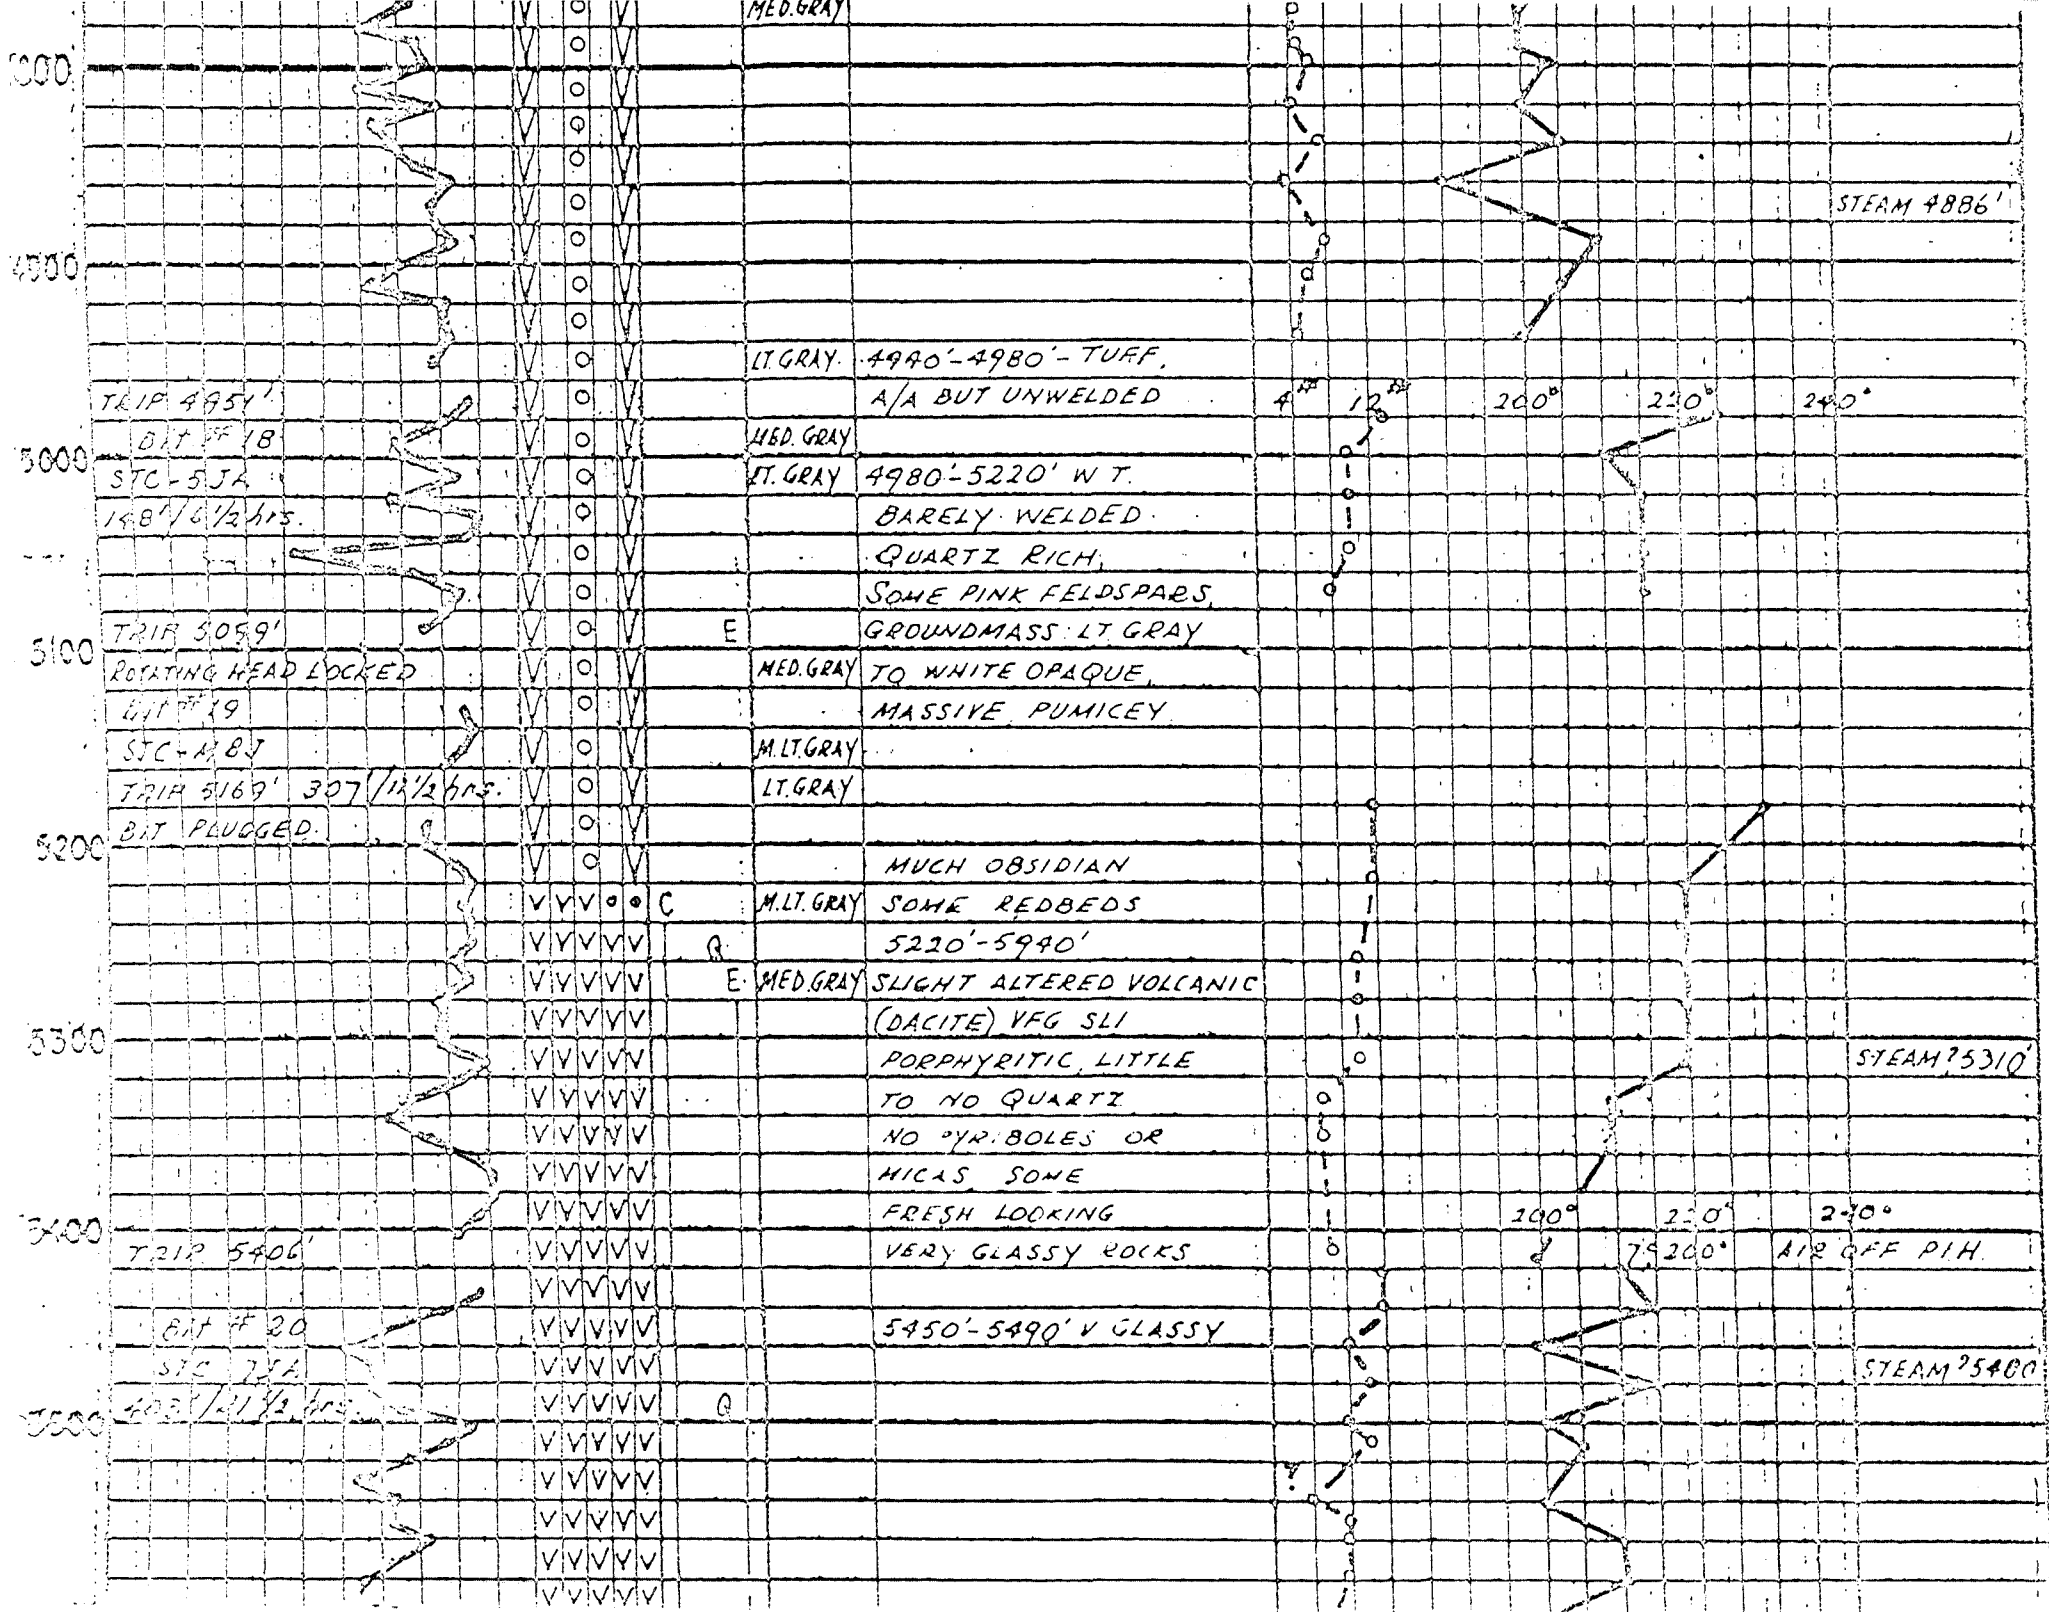 MED.GRAY
STEAM 4886'
4900
LT.GRAY 4940'-4980'- TUFF,
TRIP 4951' A/A BUT UNWELDED 4# 12# 200° 220° 240°
BIT # 18 MED. GRAY
5000
STC-5JA LT. GRAY 4980'-5220' W T.
148'/6 1/2 hrs. BARELY WELDED
QUARTZ RICH,
SOME PINK FELDSPARS,
TRIP 5059' E GROUNDMASS: LT GRAY
5100
ROTATING HEAD LOCKED MED.GRAY TO WHITE OPAQUE,
BIT # 19 MASSIVE, PUMICEY
M.LT.GRAY
TRIP 5169' 307'/12 1/2 hrs. LT.GRAY
BIT PLUGGED
5200
MUCH OBSIDIAN
C M.LT.GRAY SOME REDBEDS
Q 5220'-5940'
E MED.GRAY SLIGHT ALTERED VOLCANIC
(DACITE) VFG SLI
5300
PORPHYRITIC, LITTLE STEAM? 5310'
TO NO QUARTZ
NO PYRIBOLES OR
MICAS SOME
FRESH LOOKING 200° 220° 240°
5400
TRIP 5406' VERY GLASSY ROCKS 200° AIR OFF P.I.H.
BIT # 20 5450'-5490' V GLASSY
STC STEAM? 5480
Q
5500